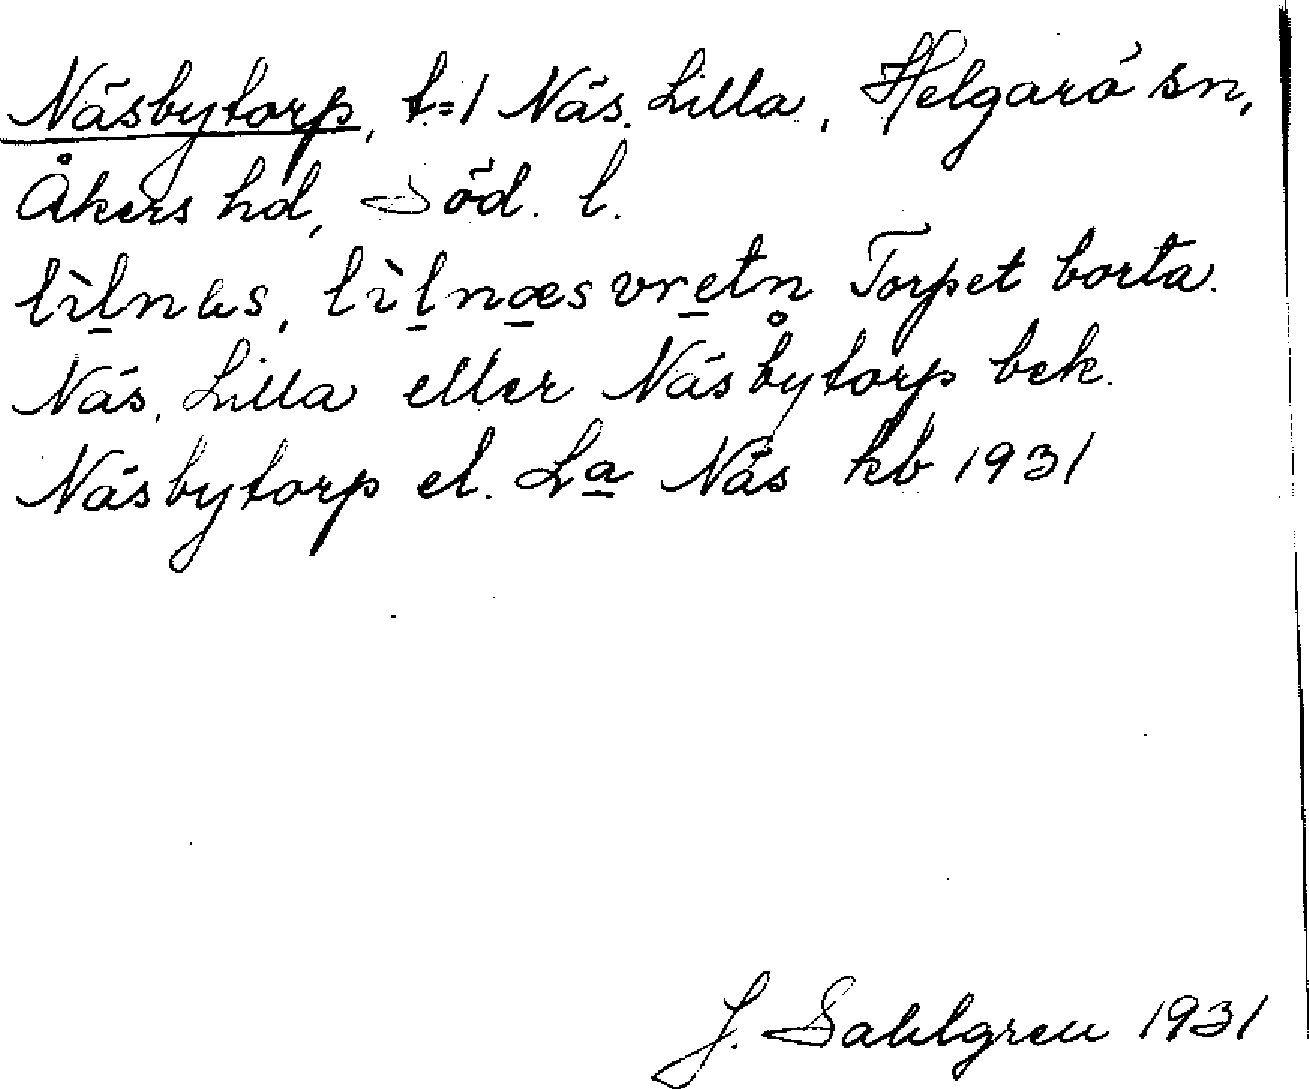 Näsbytorp, t=1 Näs, Lilla, Helgarö sn,
Åkers hd, Söd. l.
lìlnæs, lìlnæsvretn̥ Torpet borta.
Näs, Lilla eller Näsbytorp bek.
Näsbytorp el. La Näs kb 1931
J. Sahlgren 1931